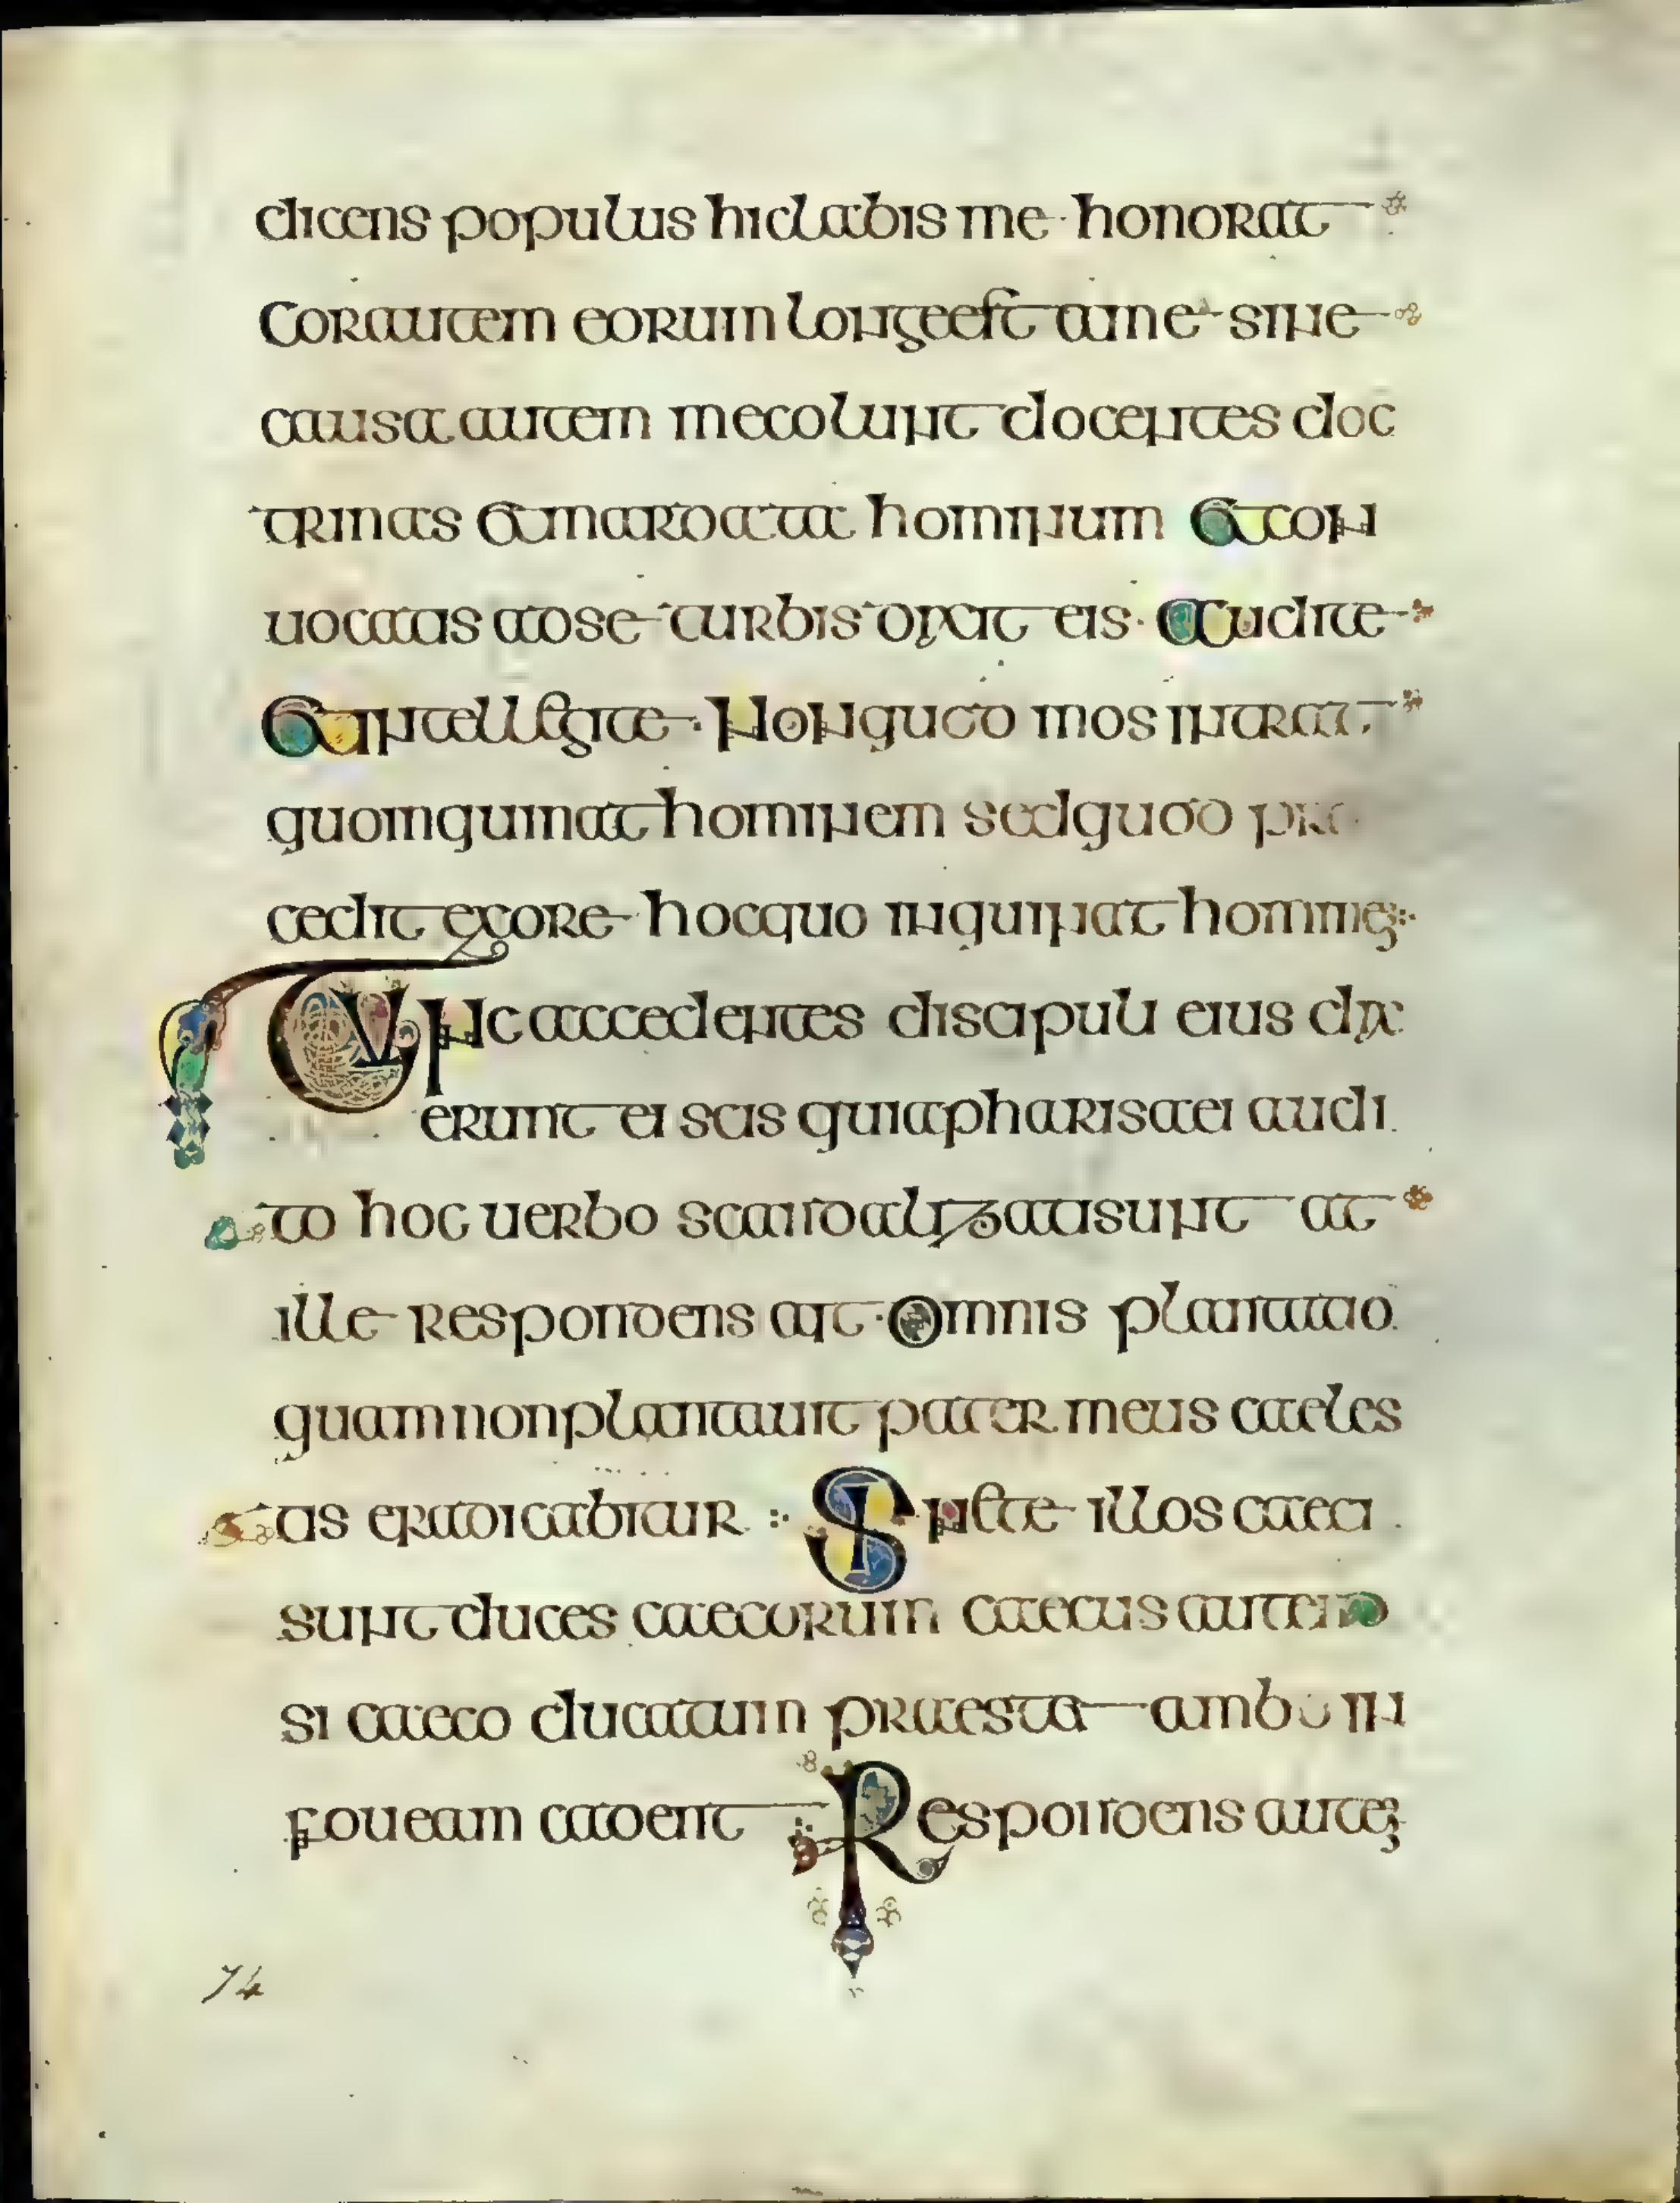 dicens populus hic labis me honorat
Cor autem eorum longe est a me sine
causa autem me colunt docentes doc
trinas et mandata hominum Et con
uocatis ad se turbis dixit eis Audite
Et intellegite Non quod in os intrat
quoinquinat hominem sed quod pro
cedit ex ore hoc quo inquinat homine
Tunc accedentes discipuli eius dix
erunt ei scis quia pharisaei audi
to hoc uerbo scandalizati sunt at
ille respondens ait Omnis plantatio
quam non plantauit pater meus caeles
tis eradicabitur Sinite illos caeci
sunt duces caecorum caecus autem
si caeco ducatum praestet ambo in
foueam cadent Respondens autē
74